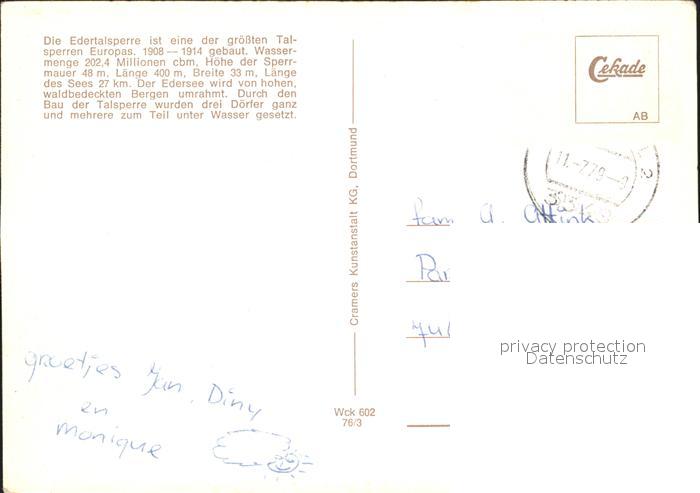 Die Edertalsperre ist eine der größten Tal-
sperren Europas. 1908 — 1914 gebaut. Wasser-
menge 202,4 Millionen cbm, Höhe der Sperr-
mauer 48 m, Länge 400 m, Breite 33 m, Länge
des Sees 27 km. Der Edersee wird von hohen,
waldbedeckten Bergen umrahmt. Durch den
Bau der Talsperre wurden drei Dörfer ganz
und mehrere zum Teil unter Wasser gesetzt.
Cekade
AB
11.-7.79-9
Cramers Kunstanstalt KG, Dortmund
fam A. Attink
groetjes Jan, Diny
en
Monique
Wck 602
76/3
privacy protection
Datenschutz